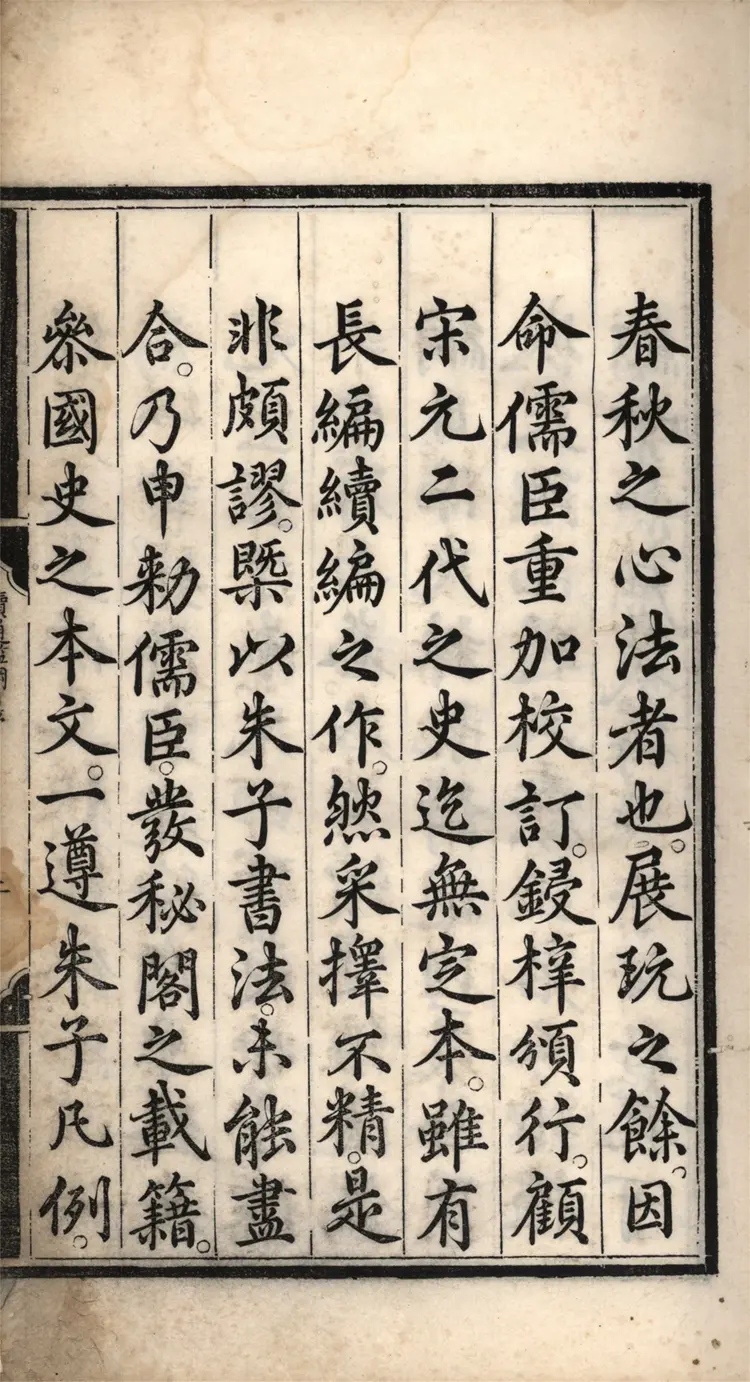 春秋之心法者也。展玩之餘。因
命儒臣重加校訂。鋟梓頒行。顧
宋元二代之史迄無定本。雖有
長編續編之作。然采擇不精。是
非頗謬。槩以朱子書法。未能盡
合。乃申勑儒臣。發秘閣之載籍。
叅國史之本文。一遵朱子凡例。